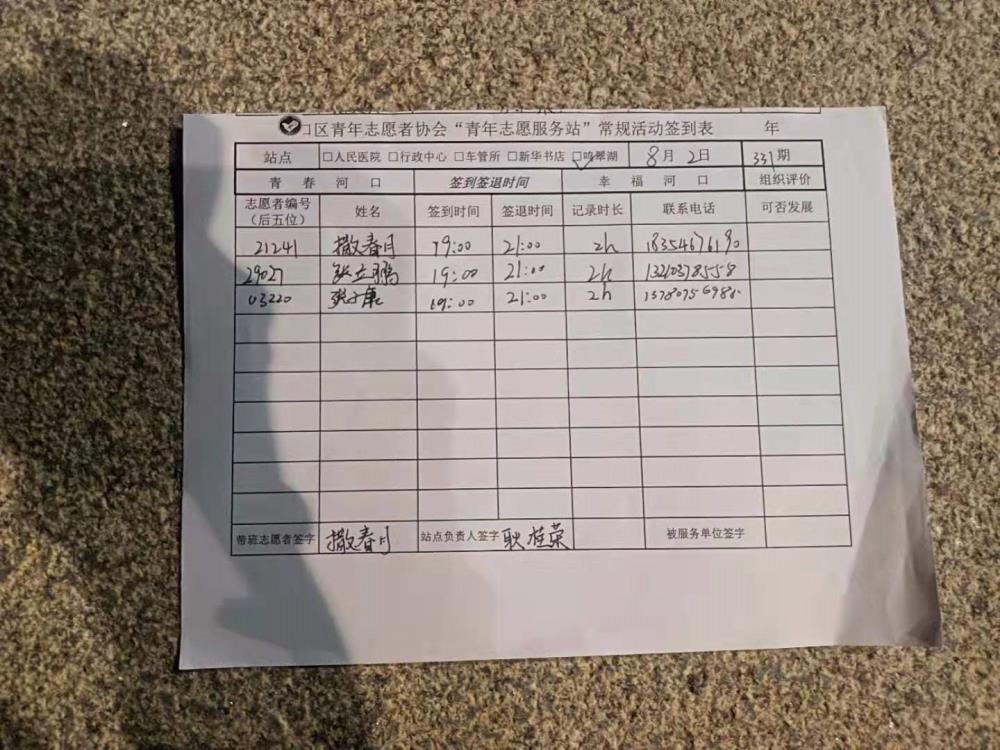 口区青年志愿者协会“青年志愿服务站”常规活动签到表 年
站点 □人民医院 □行政中心 □车管所 □新华书店 □鸣翠湖 8月2日 331期
青春河口 签到签退时间 幸福河口 组织评价
志愿者编号（后五位） 姓名 签到时间 签退时间 记录时长 联系电话 可否发展
21241 撒春月 19:00 21:00 2h 18354676190
29027 张立鹏 19:00 21:00 2h 13210378558
03220 张子康 19:00 21:00 2h
带班志愿者签字 撒春月 站点负责人签字 耿桂荣 被服务单位签字